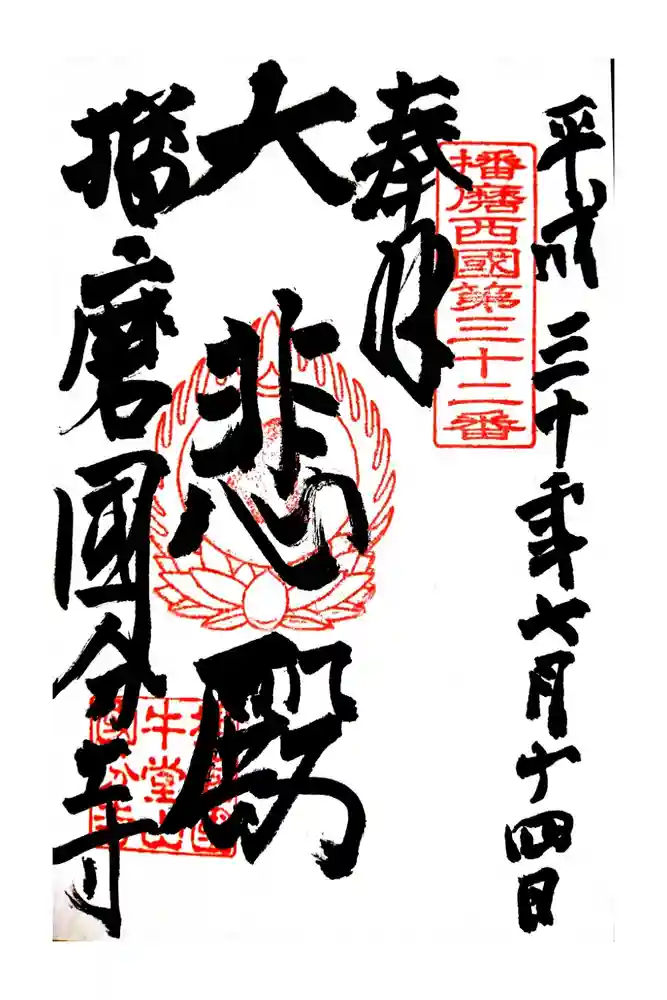 平成三十年七月十四日
奉拝
播磨西國第三十二番
大悲殿
播磨國分寺
牛堂山
國分寺